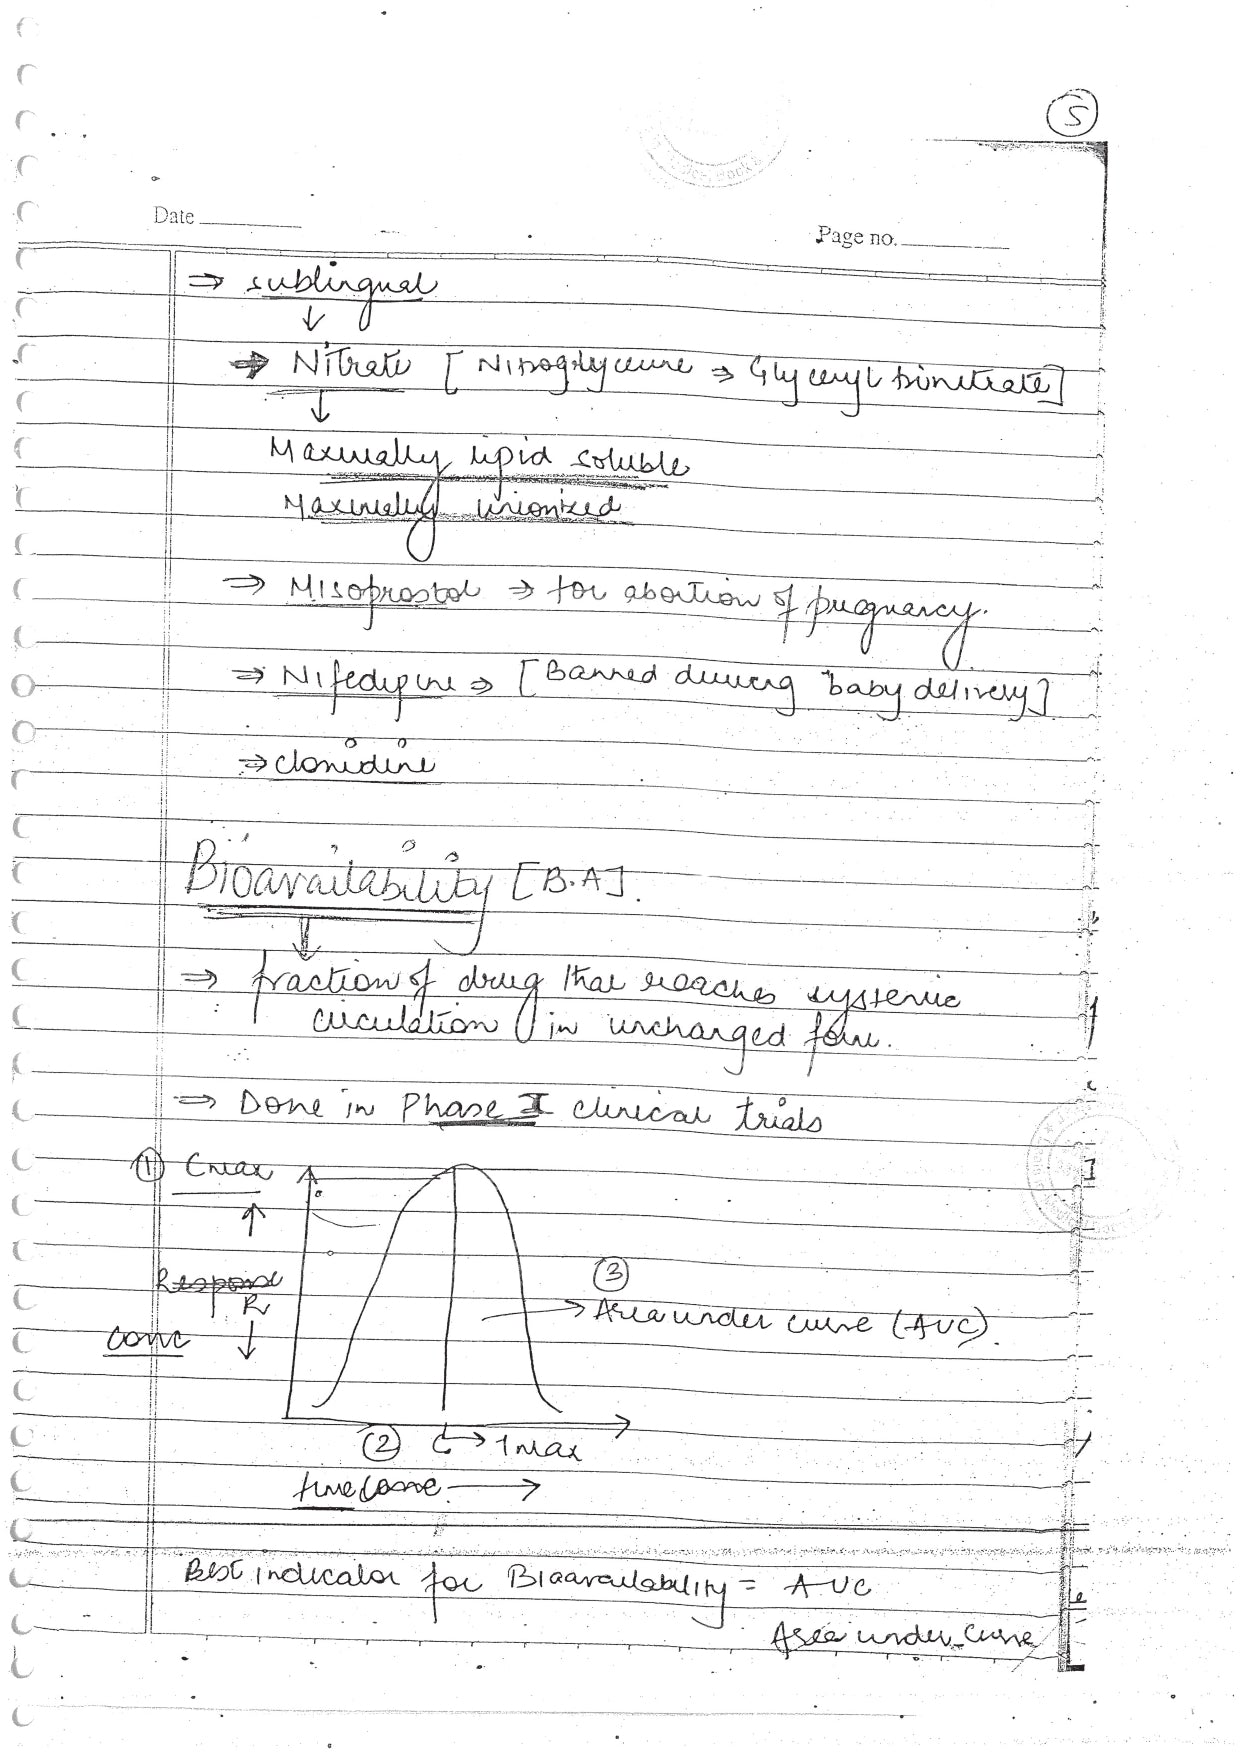 5
Date
Page no.
⇒ sublingual
↓
⇒ Nitrate [Nitroglycerine ⇒ Glyceryl trinitrate]
↓
Maximally lipid soluble
Maximally unionized
⇒ Misoprostol ⇒ for abortion of pregnancy.
⇒ Nifedipine ⇒ [Banned during baby delivery]
⇒ clonidine
Bioavailability [B.A].
⇒ fraction of drug that reaches systemic
circulation in uncharged form.
⇒ Done in Phase I clinical trials
① Cmax
↑
Response
R
conc
↓
③
→ Area under curve (AUC).
② → Tmax
time →
Best indicator for Bioavailability = AUC
Area under curve